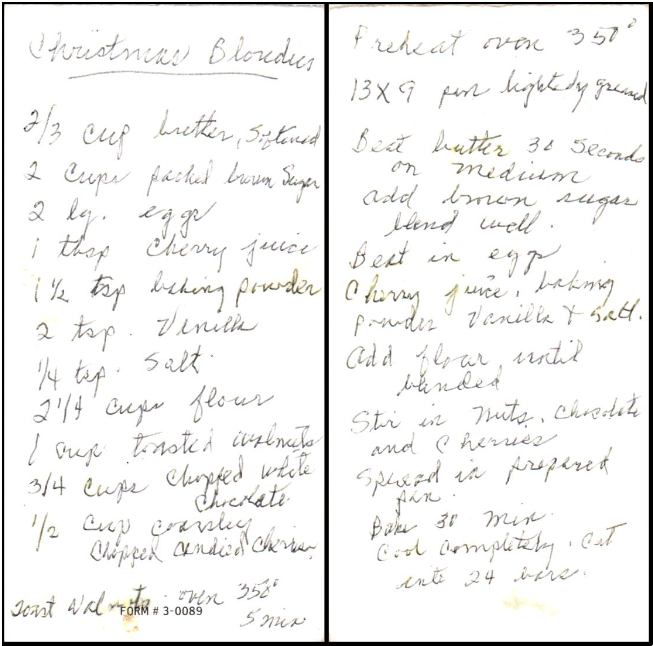 Christmas Blondies
2/3 cup butter, Softened
2 cups packed brown Sugar
2 lg. eggs
1 tbsp cherry juice
1 1/2 tsp baking powder
2 tsp. Vanilla
1/4 tsp. Salt.
2 1/4 cups flour
1 cup toasted walnuts
3/4 cups chopped white
Chocolate.
1/2 cup coarsley
Chopped candied cherries.
Toast Walnuts. oven 350°
5 min
FORM # 3-0089
Preheat oven 350°
13X9 pan lightly greased
Beat butter 30 Seconds
on medium
add brown sugar
blend well.
Beat in eggs
Cherry juice, baking
powder Vanilla & Salt.
add flour until
blended
Stir in nuts, chocolate
and cherries
Spread in prepared
pan.
Bake 30 min.
Cool completely. Cut
into 24 bars.